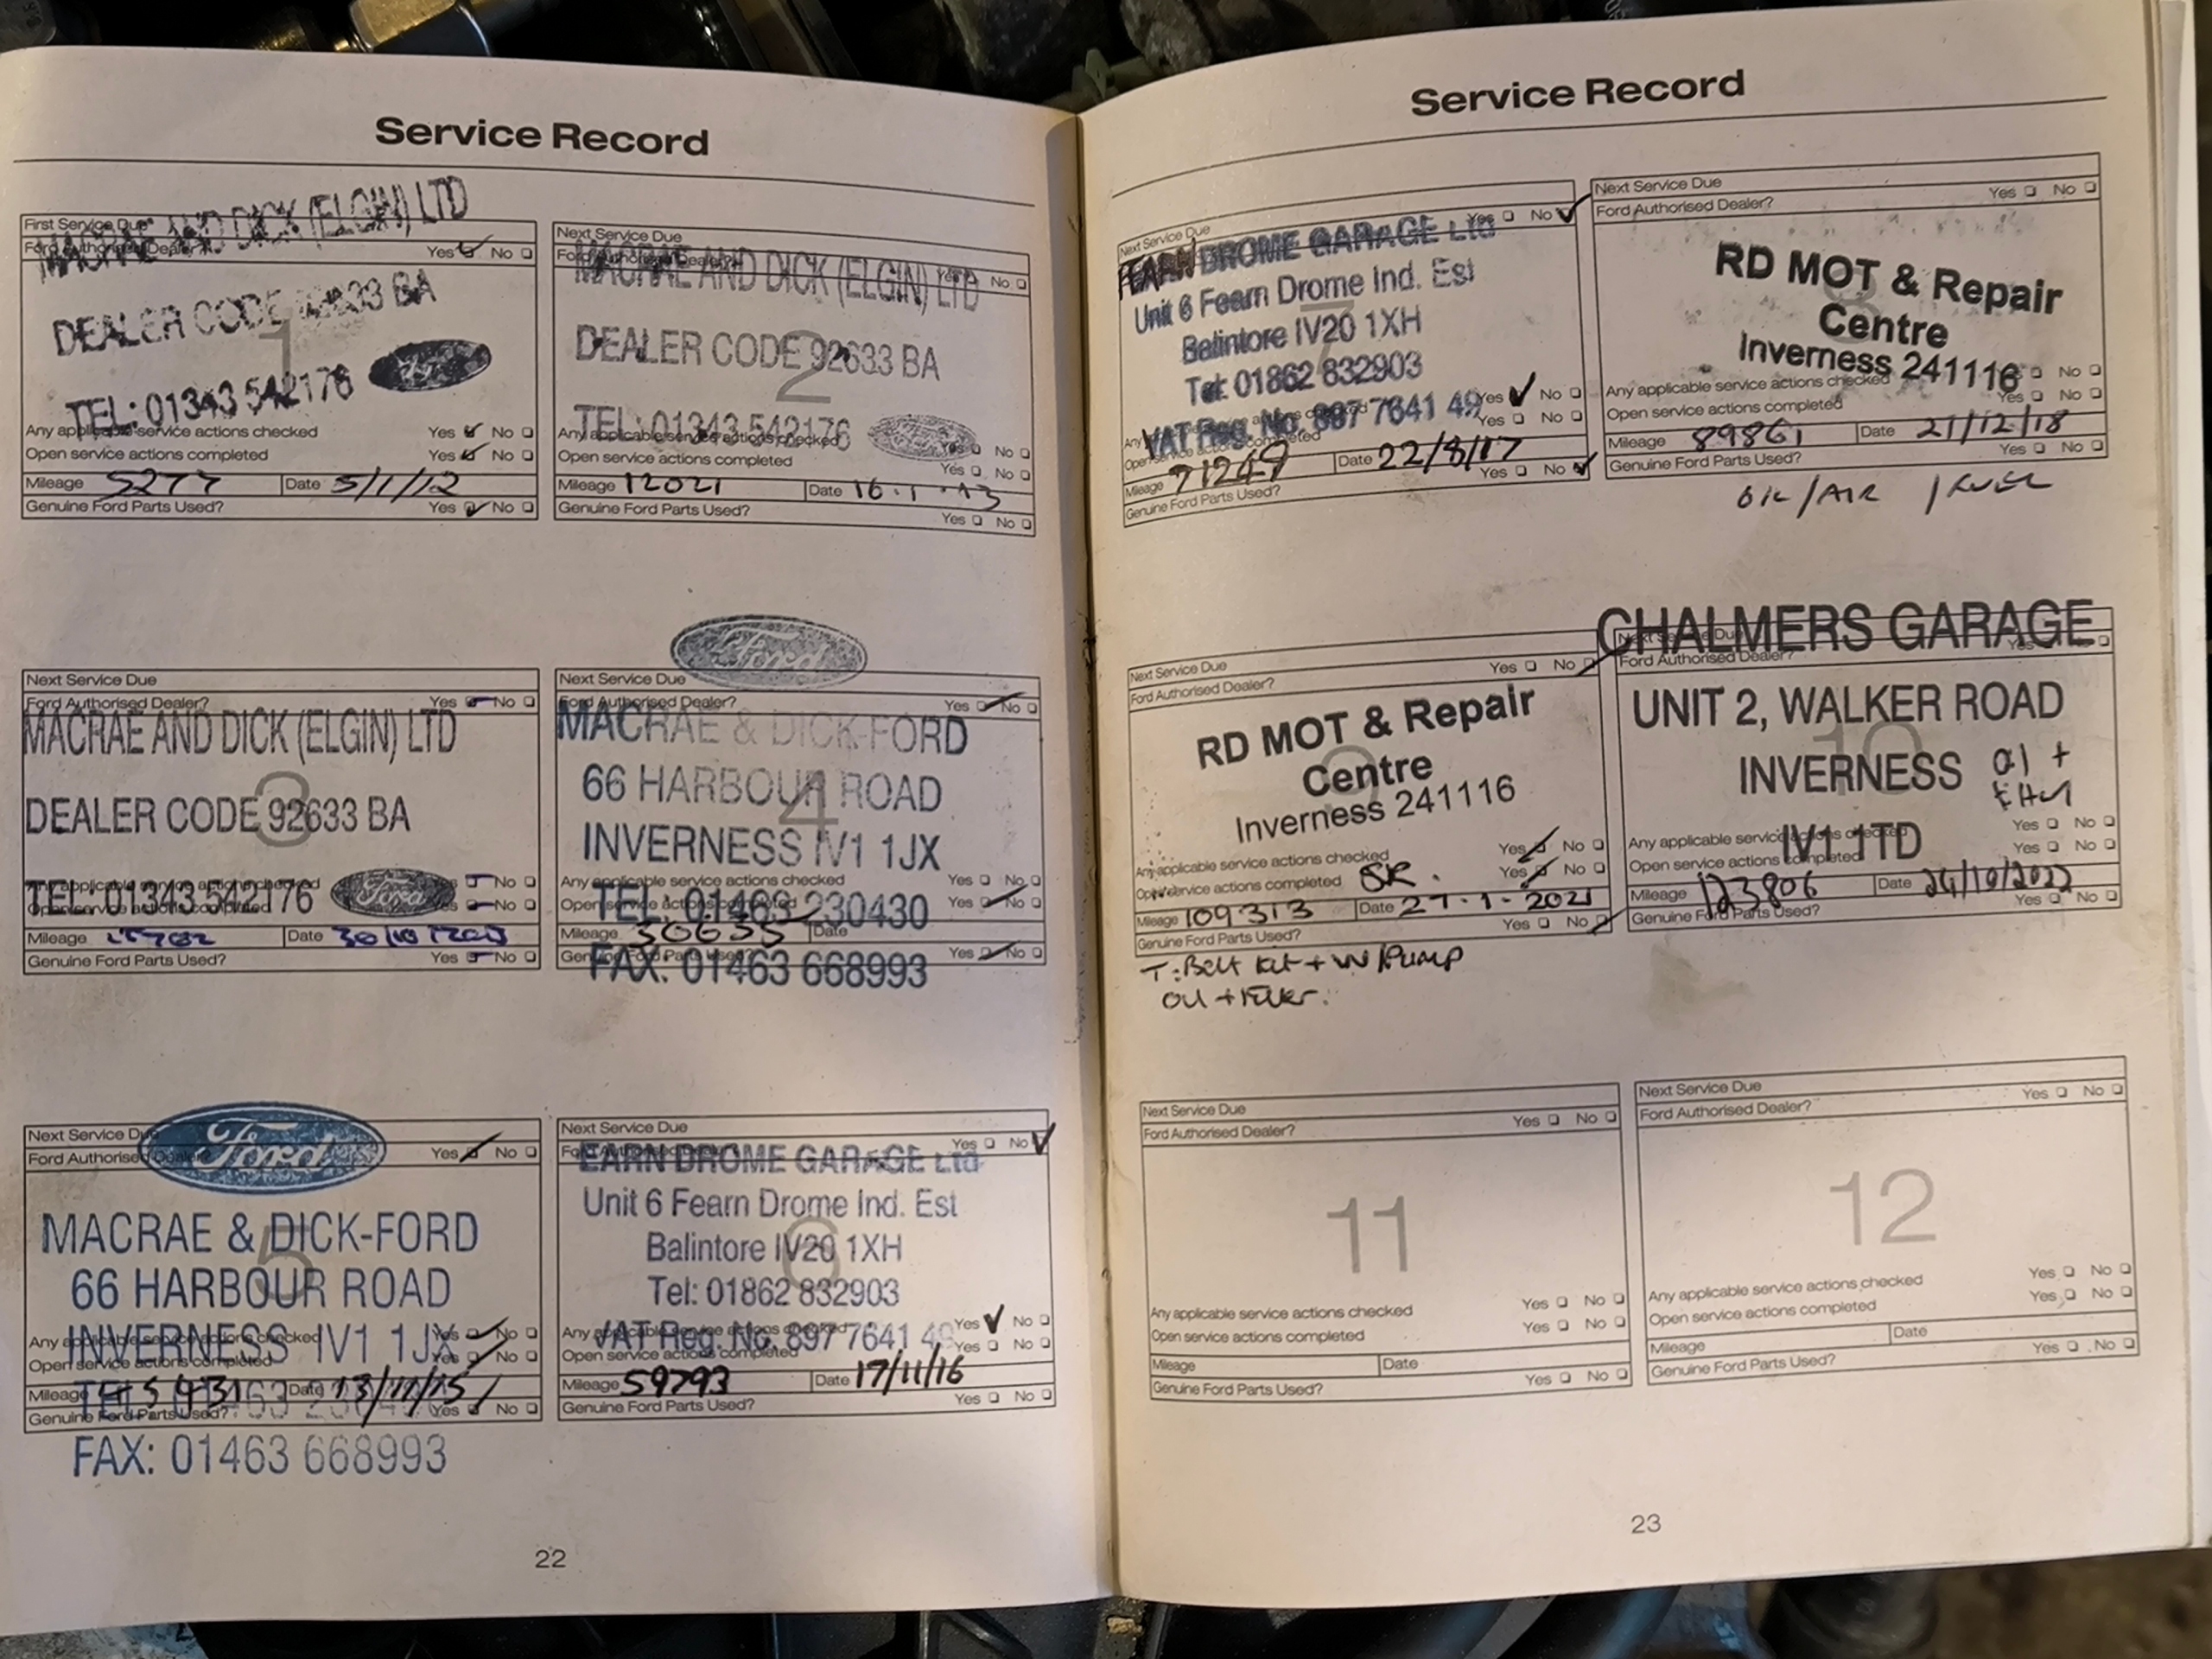 Service Record
First Service Due
Ford Authorised Dealer? Yes No
MACRAE AND DICK (ELGIN) LTD
DEALER CODE 92633 BA
1
TEL: 01343 542176 Ford
Any applicable service actions checked Yes No
Open service actions completed Yes No
Mileage 5277 Date 5/1/12
Genuine Ford Parts Used? Yes No
Next Service Due
Ford Authorised Dealer? Yes No
MACRAE AND DICK (ELGIN) LTD
DEALER CODE 92633 BA
2
TEL: 01343 542176 Ford
Any applicable service actions checked Yes No
Open service actions completed Yes No
Mileage 12021 Date 16.1.13
Genuine Ford Parts Used? Yes No
Next Service Due
Ford Authorised Dealer? Yes No
MACRAE AND DICK (ELGIN) LTD
3
DEALER CODE 92633 BA
TEL: 01343 542176 Ford
Any applicable service actions checked No
Open service actions completed No
Mileage Date
Genuine Ford Parts Used? Yes No
Ford
Next Service Due
Ford Authorised Dealer? Yes No
MACRAE & DICK-FORD
66 HARBOUR ROAD
4
INVERNESS IV1 1JX
Any applicable service actions checked Yes No
Open service actions completed Yes No
TEL: 01463 230430
Mileage 30635 Date
Genuine Ford Parts Used? Yes No
FAX: 01463 668993
Ford
Next Service Due
Ford Authorised Dealer? Yes No
MACRAE & DICK-FORD
5
66 HARBOUR ROAD
INVERNESS IV1 1JX
Any applicable service actions checked Yes No
Open service actions completed Yes No
Mileage Date 13/11/15
TEL: 01463
Genuine Ford Parts Used? Yes No
FAX: 01463 668993
Next Service Due
Ford Authorised Dealer? Yes No
EARN DROME GARAGE Ltd
Unit 6 Fearn Drome Ind. Est
Balintore IV20 1XH
6
Tel: 01862 832903
VAT Reg. No. 897 7641 49
Any applicable service actions checked Yes No
Open service actions completed Yes No
Mileage 59793 Date 17/11/16
Genuine Ford Parts Used? Yes No
22
Service Record
Next Service Due
Yes No
FEARN DROME GARAGE Ltd
Unit 6 Fearn Drome Ind. Est
Balintore IV20 1XH
7
Tel: 01862 832903
VAT Reg. No. 897 7641 49
Yes No
Yes No
Mileage 71249 Date 22/8/17
Genuine Ford Parts Used? Yes No
Next Service Due
Ford Authorised Dealer? Yes No
RD MOT & Repair
8
Centre
Inverness 241116
Any applicable service actions checked No
Open service actions completed Yes No
Mileage 89861 Date 21/12/18
Genuine Ford Parts Used? Yes No
OIL/AIR /FUEL
Next Service Due
Ford Authorised Dealer? Yes No
RD MOT & Repair
9
Centre
Inverness 241116
Any applicable service actions checked Yes No
Open service actions completed SR. Yes No
Mileage 109313 Date 27.1.2021
Genuine Ford Parts Used? Yes No
T.Belt Kit + W/Pump
Oil + Filter.
CHALMERS GARAGE
Next Service Due
Ford Authorised Dealer? Yes
UNIT 2, WALKER ROAD
10
INVERNESS oil +
IV1 1TD
Any applicable service actions checked Yes No
Open service actions completed Yes No
Mileage 123806 Date 24/10/2022
Genuine Ford Parts Used? Yes No
Next Service Due
Ford Authorised Dealer? Yes No
11
Any applicable service actions checked Yes No
Open service actions completed Yes No
Mileage Date
Genuine Ford Parts Used? Yes No
Next Service Due
Ford Authorised Dealer? Yes No
12
Any applicable service actions checked Yes No
Open service actions completed Yes No
Mileage Date
Genuine Ford Parts Used? Yes No
23